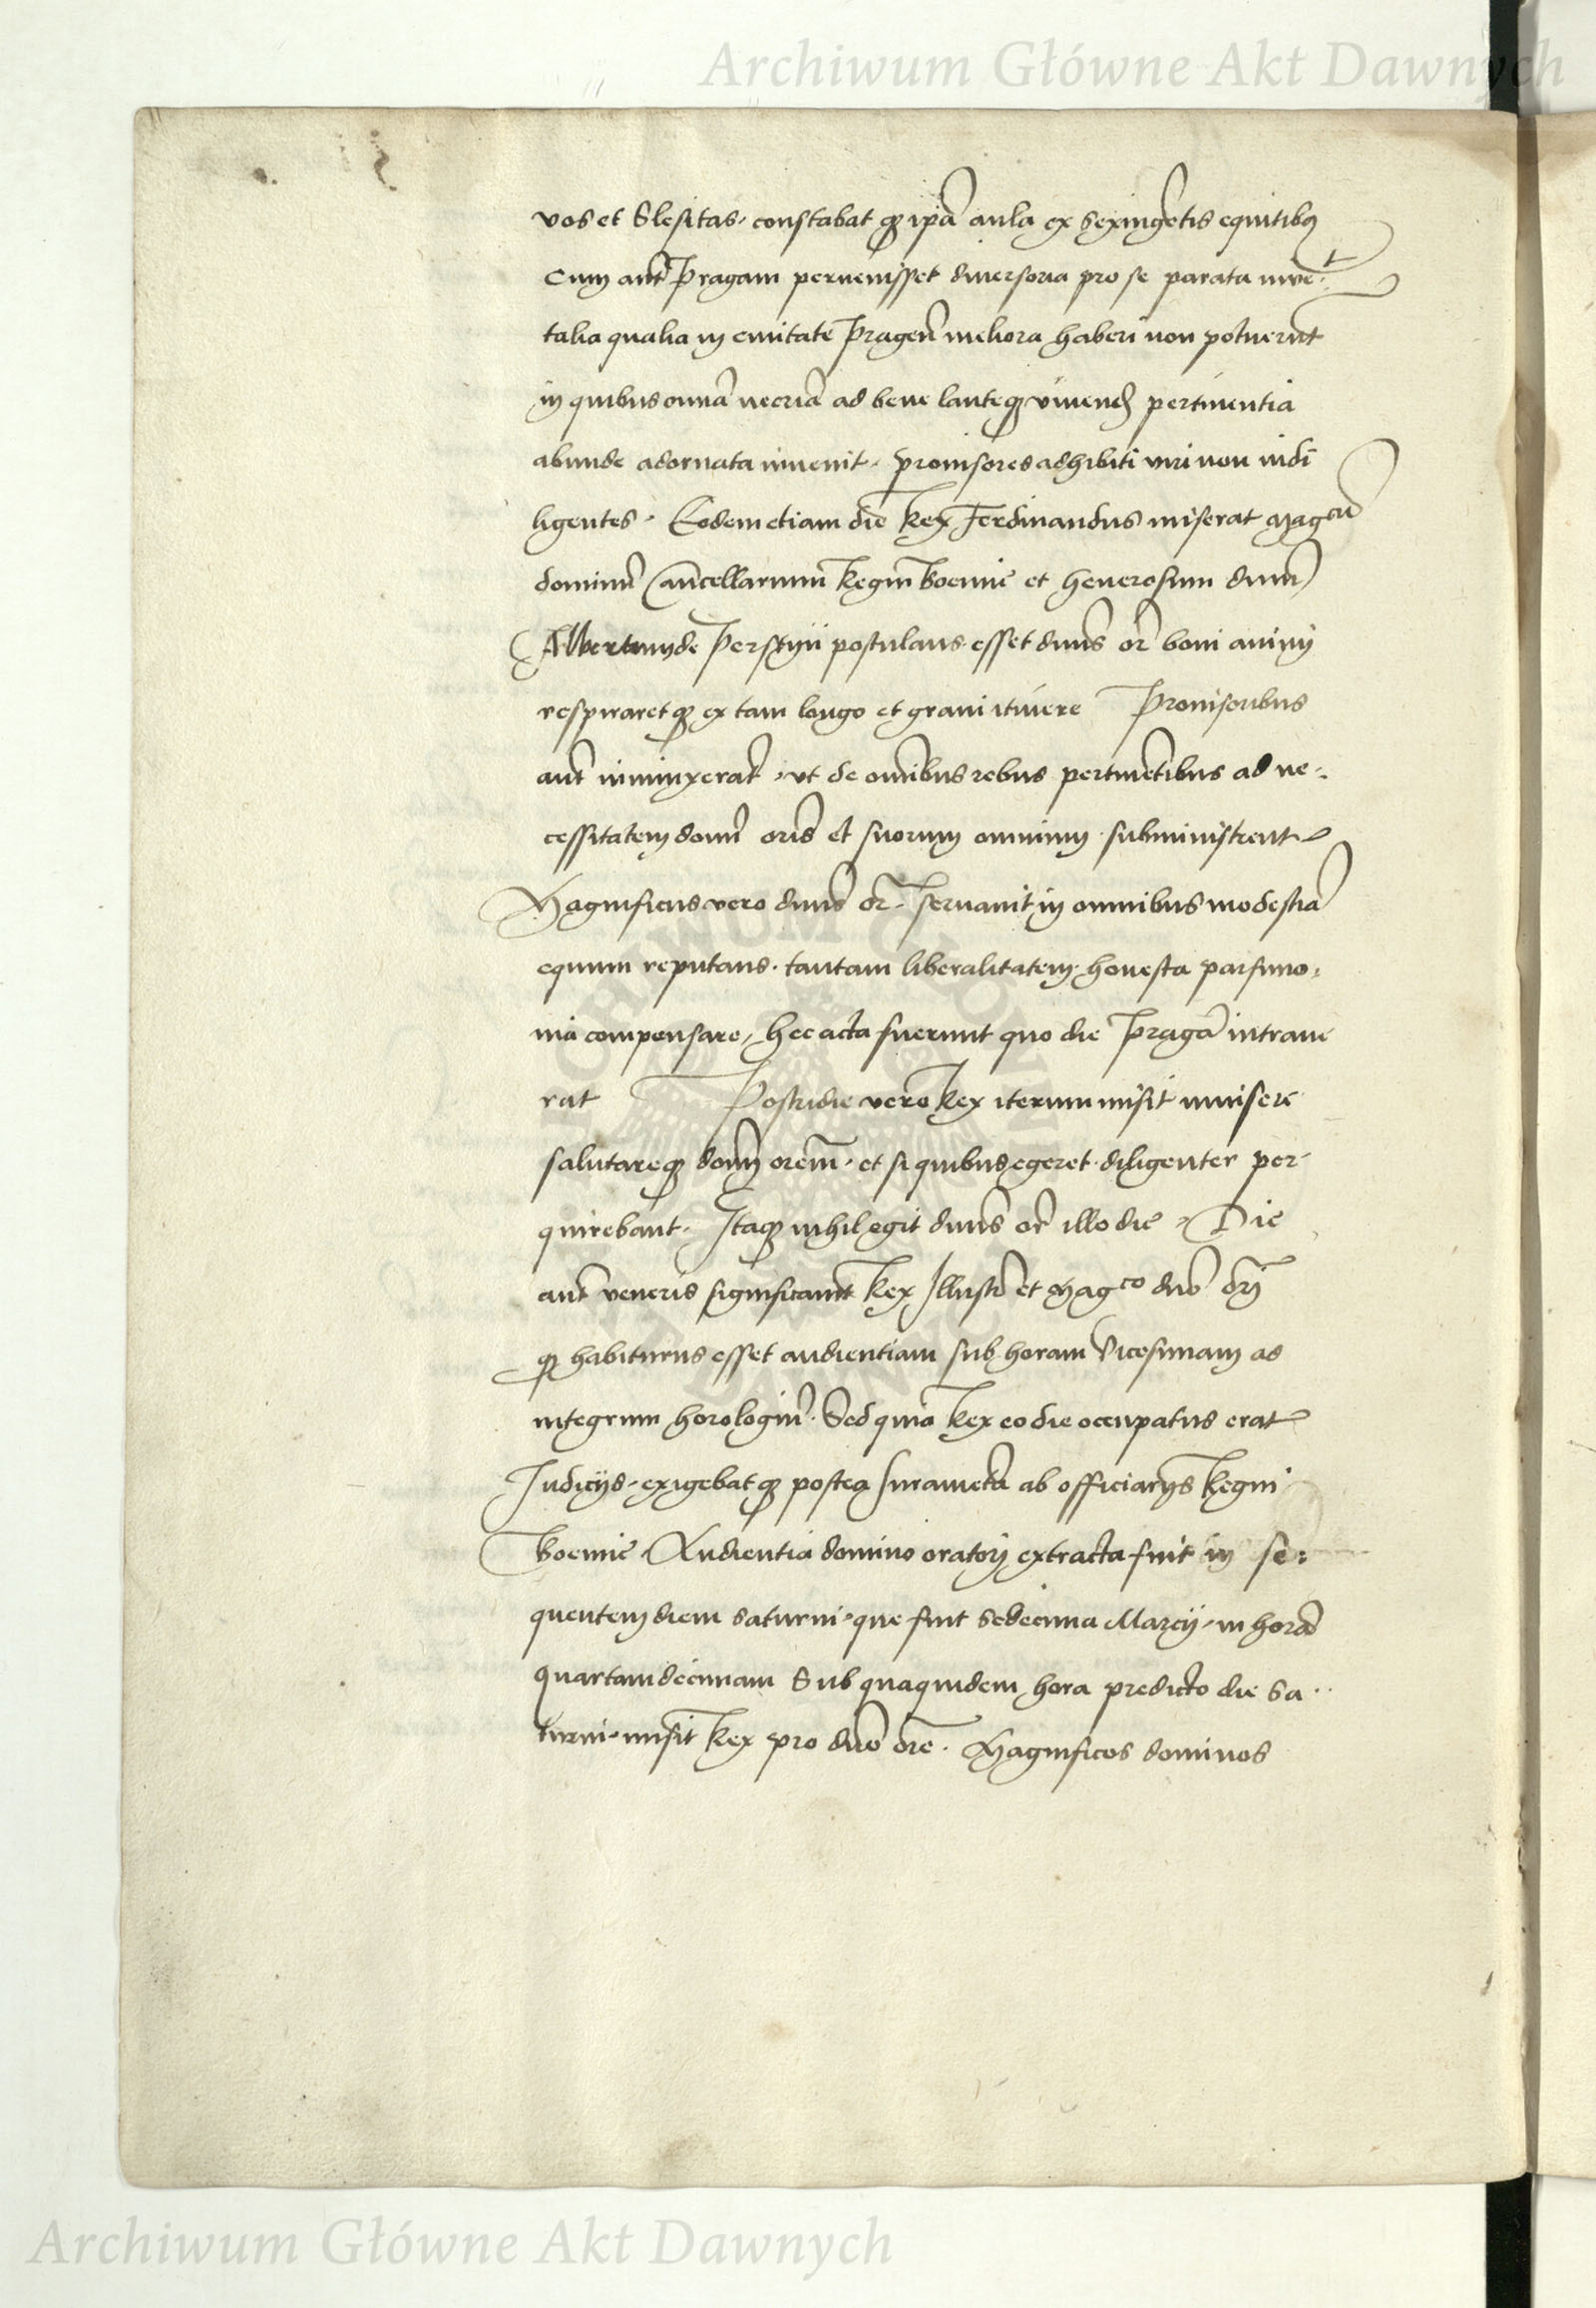 Archiwum Główne Akt Dawnych
vos et Slesitas, constabat qȝ ipā aula ex sexingētis equitibȝ
Cum aūt Pragam pervenisset diversoria pro se parata inveˉt
talia qualia in civitate Pragēn meliora haberi non potuerūt
in quibus omīa necriā ad bene lauteqȝ vivend pertinentia
abunde adornata invenit, provisores adhibiti viri non indi
ligentes. Eodem etiam die Rex Ferdinandus miserat Magcū
dominū Cācellarium Regni Boemie et Generosum dnm̄
Albertum de Perstÿn postulans esset dnūs or̄ boni animi
respiraretqȝ ex tam longo et gravi itinere Provisoribus
aūt iniunxerat, ut de omībus rebus pertinētibus ad ne-
cessitatem domī oris et suorum omnium subministrent
Magnificus vero dnūs or̄. servavit in omnibus modestiā
equum reputans, tantam liberalitatem honesta parsimo,
nia compensare, hec acta fuerunt quo die Pragā intrave
rat Postridie vero Rex iterum misit invisere
salutareqȝ dom̄ orem̄, et si quibus egeret diligenter per
quirebant. Itaqȝ nihil egit dnūs or̄ illo die. Die
aūt veneris significavit Rex Illustri et Magco dnō ori
qȝ habiturus esset audientiam sub horam Vicesimam ad
integrum horologiū. Sed quia Rex eo die occupatus erat
Iudicijs, exigebatqȝ postea Iuramēta ab officiarijs Regni
Boemie Audientia domino oratori extracta fuit in se:
quentem diem Saturni, que fuit Sedecima Marcij, in horā
quartamdecimam Sub quaquidem hora predicto die Sa..
turni, misit Rex pro dnō orē. Magnificos dominos
Archiwum Główne Akt Dawnych